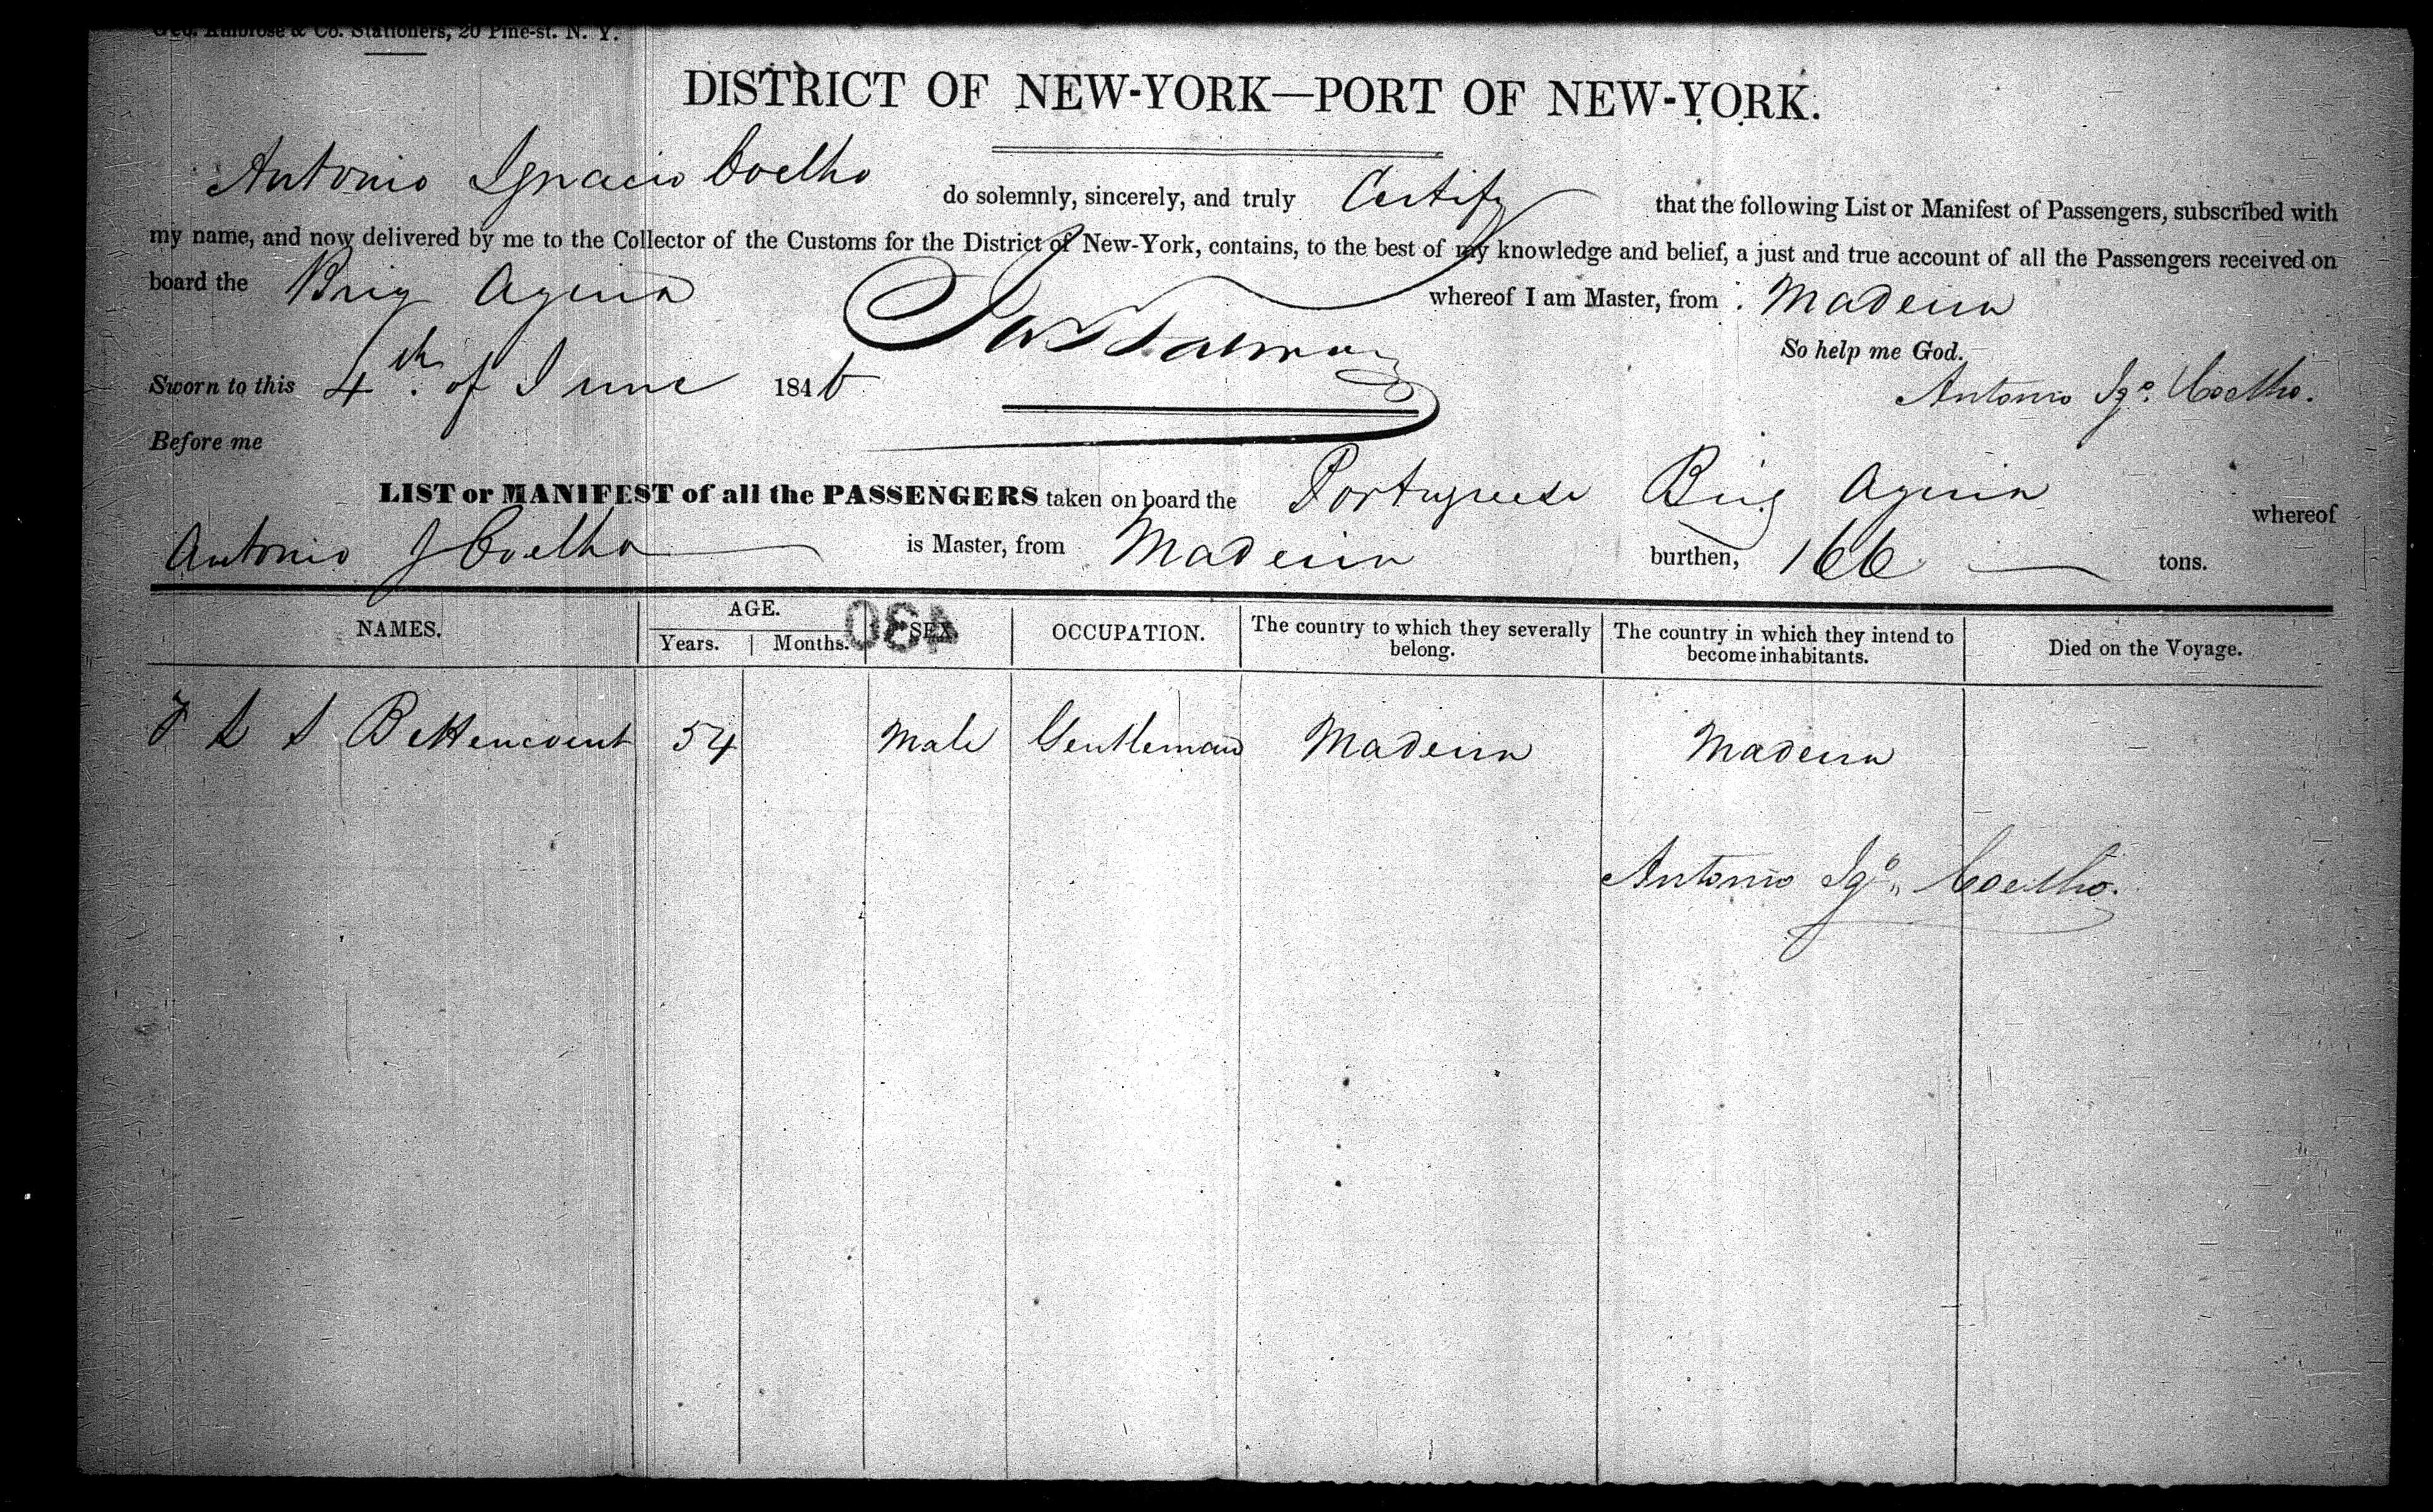 Geo. Ambrose & Co. Stationers, 20 Pine-st. N. Y.
DISTRICT OF NEW-YORK—PORT OF NEW-YORK.
Antonio Ignacio Coelho do solemnly, sincerely, and truly Certify that the following List or Manifest of Passengers, subscribed with
my name, and now delivered by me to the Collector of the Customs for the District of New-York, contains, to the best of my knowledge and belief, a just and true account of all the Passengers received on
board the Brig whereof I am Master, from Madeira
So help me God.
Sworn to this 4th. of June 184
Antonio Igo. Coelho.
Before me
LIST or MANIFEST of all the PASSENGERS taken on board the Portuguese Brig whereof
Antonio J Coelho is Master, from Madeira burthen, 166 tons.
NAMES. AGE. Years. Months. SEX OCCUPATION. The country to which they severally belong. The country in which they intend to become inhabitants. Died on the Voyage.
430
F L S Bettencourt 54 Male Gentleman Madeira Madeira
Antonio Igo. Coelho.